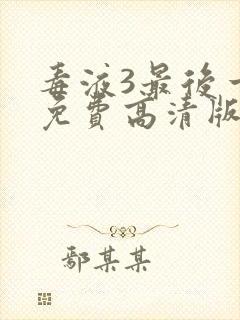 毒液3最后一
免費高清版
鄢某某